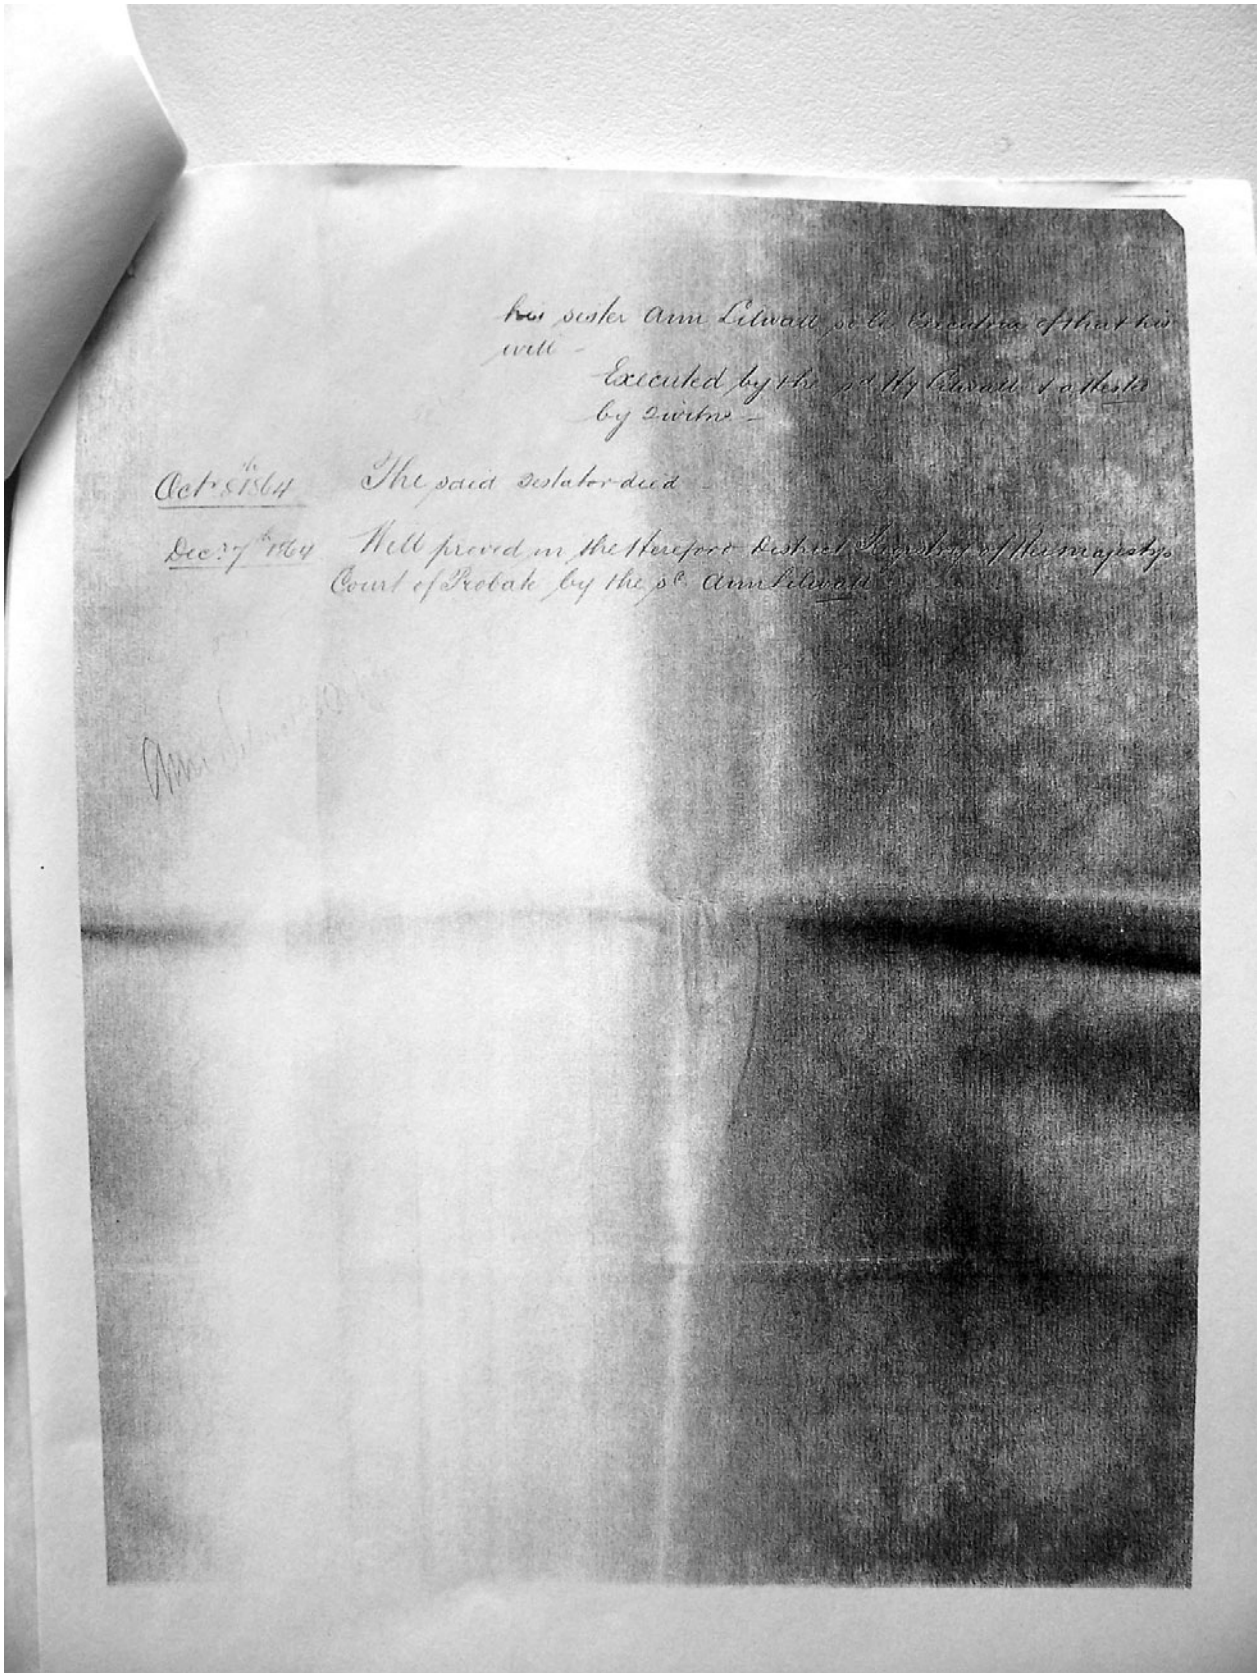 his sister Ann Lilwall sole Executrix of that his
will -
Executed by the sd Hy Lilwall & attested
by 2 witns -
Octr 8th 1864 The said testator died -
Decr 7th 1864 Will proved in the Hereford District Registry of Her majesty's
Court of Probate by the sd Ann Lilwall
Ann